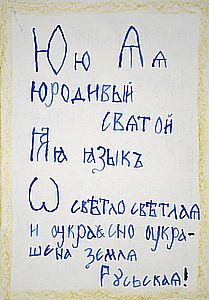 Юю Ѧѧ
юродивый
свѧтой
Ꙗꙗ ꙗзыкъ
Ѡ свѣтло свѣтлаѧ
и оукрасно оукра-
шена землѧ
Русьскаѧ!